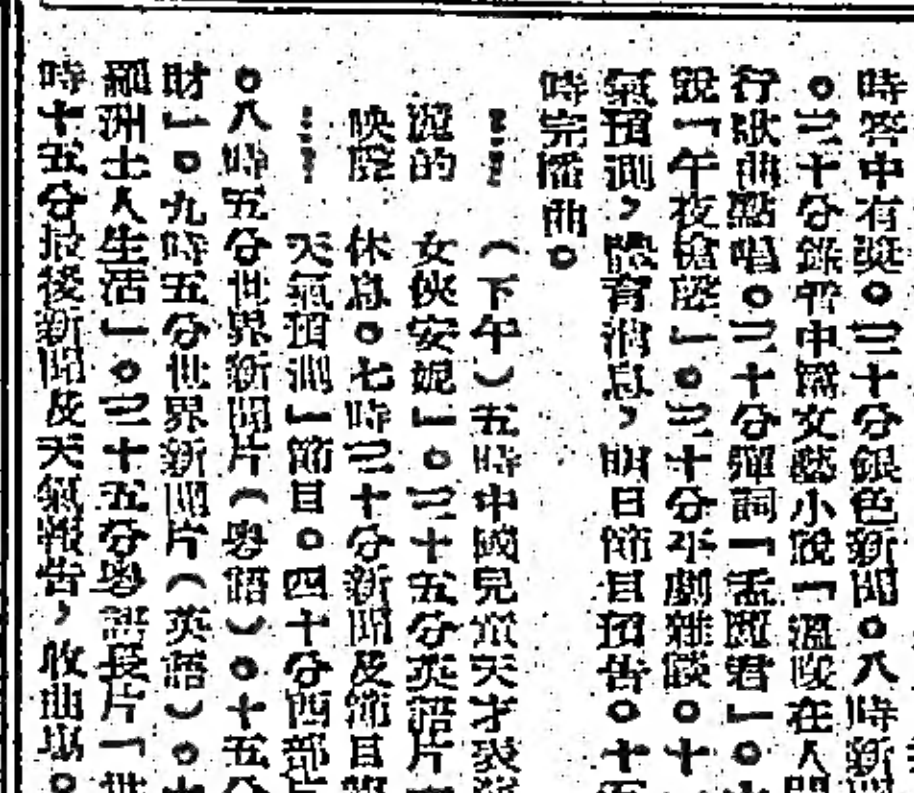 時答中有獎。三十分銀色新聞。八時新聞
。三十分鄉 中篇文藝小說「溫暖在人間
行歌曲點唱。三十分彈詞「孟麗君」。十
說「午夜槍聲」。三十分平劇雜談。十
氣預測，體育消息，明日節目預告。十
時完播曲。
（下午）五時中國兒童天才表演
麗的 女俠安妮」。三十五分英語片
映聲 休息。七時三十分新聞及節目
天氣預測」節目。四十分西部片
。八時五分世界新聞片（粵語）。十五分
財」。九時五分世界新聞片（英語）。十
羅洲土人生活」。三十五分粵語長片「世
時十五分最後新聞及天氣報告，收曲 。